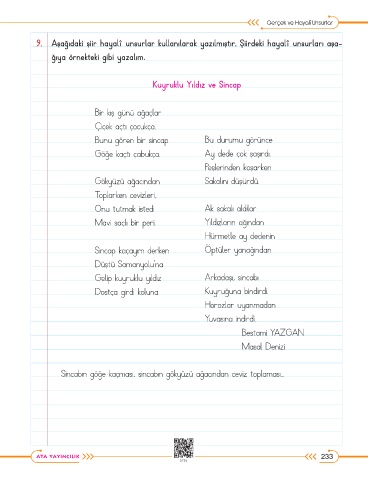 Gerçek ve Hayalî Unsurlar
9. Aşağıdaki şiir hayalî unsurlar kullanılarak yazılmıştır. Şiirdeki hayalî unsurları aşa-
ğıya örnekteki gibi yazalım.
Kuyruklu Yıldız ve Sincap
Bir kış günü ağaçlar
Çiçek açtı çocukça.
Bunu gören bir sincap
Göğe kaçtı çabukça.
Gökyüzü ağacından
Toplarken cevizleri,
Onu tutmak istedi
Mavi saçlı bir peri.
Sincap kaçayım derken
Düştü Samanyolu'na.
Gelip kuyruklu yıldız
Dostça girdi koluna.
Bu durumu görünce
Ay dede çok şaşırdı.
Peşlerinden koşarken
Sakalını düşürdü.
Ak sakalı aldılar
Yıldızların ağından.
Hürmetle ay dedenin
Öptüler yanağından.
Arkadaşı, sincabı
Kuyruğuna bindirdi.
Horozlar uyanmadan
Yuvasına indirdi.
Bestami YAZGAN
Masal Denizi
Sincabın göğe kaçması, sincabın gökyüzü ağacından ceviz toplaması...
ATA YAYINCILIK
233